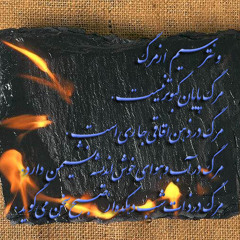 و نترسیم از مرگ
مرگ پایان کبوتر نیست.
مرگ در ذهن اقاقی جاری است.
مرگ در آب و هوای خوش اندیشه نشیمن دارد.
مرگ در ذات شب دهکده از صبح سخن می‌گوید.